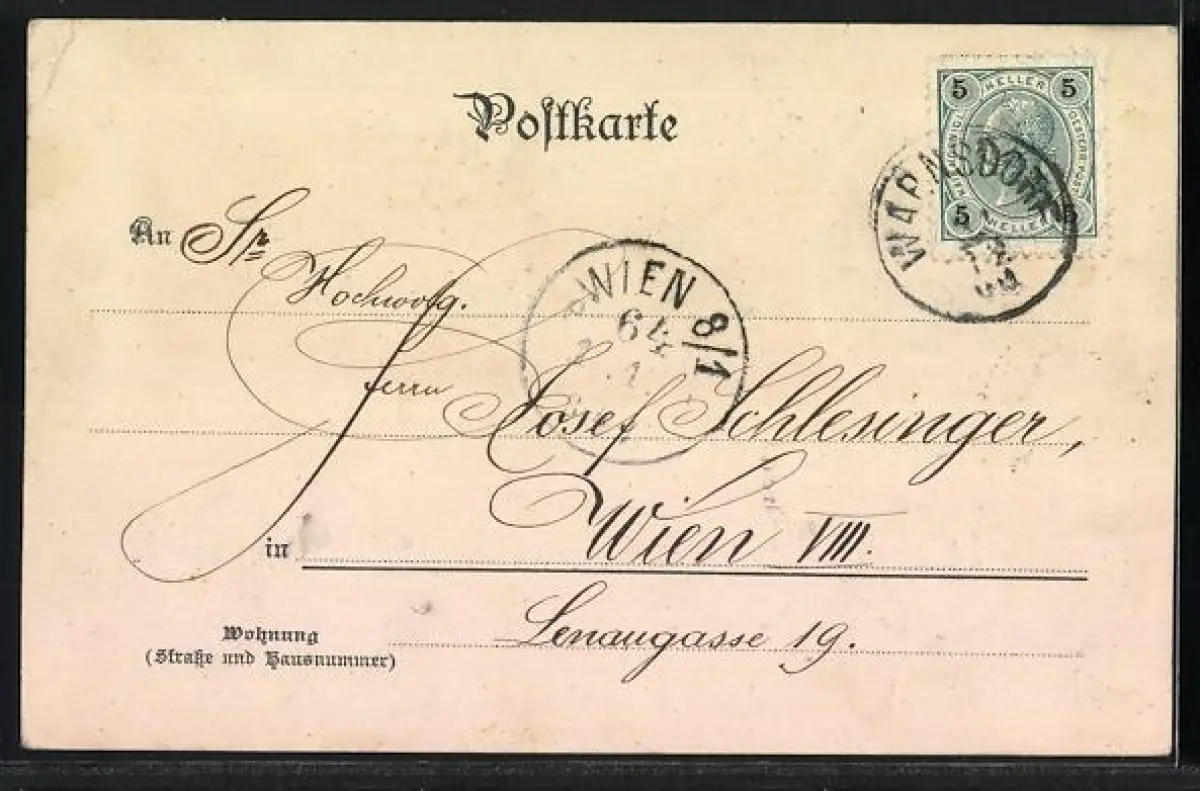 Postkarte
5 HELLER 5
OESTERR. POST
5 HELLER 5
WARNSDORF
An Sr
Hochwolg.
WIEN 8/1
64
1
Herrn
Josef Schlesinger,
in Wien VIII.
Wohnung
(Straße und Hausnummer)
Lenaugasse 19.